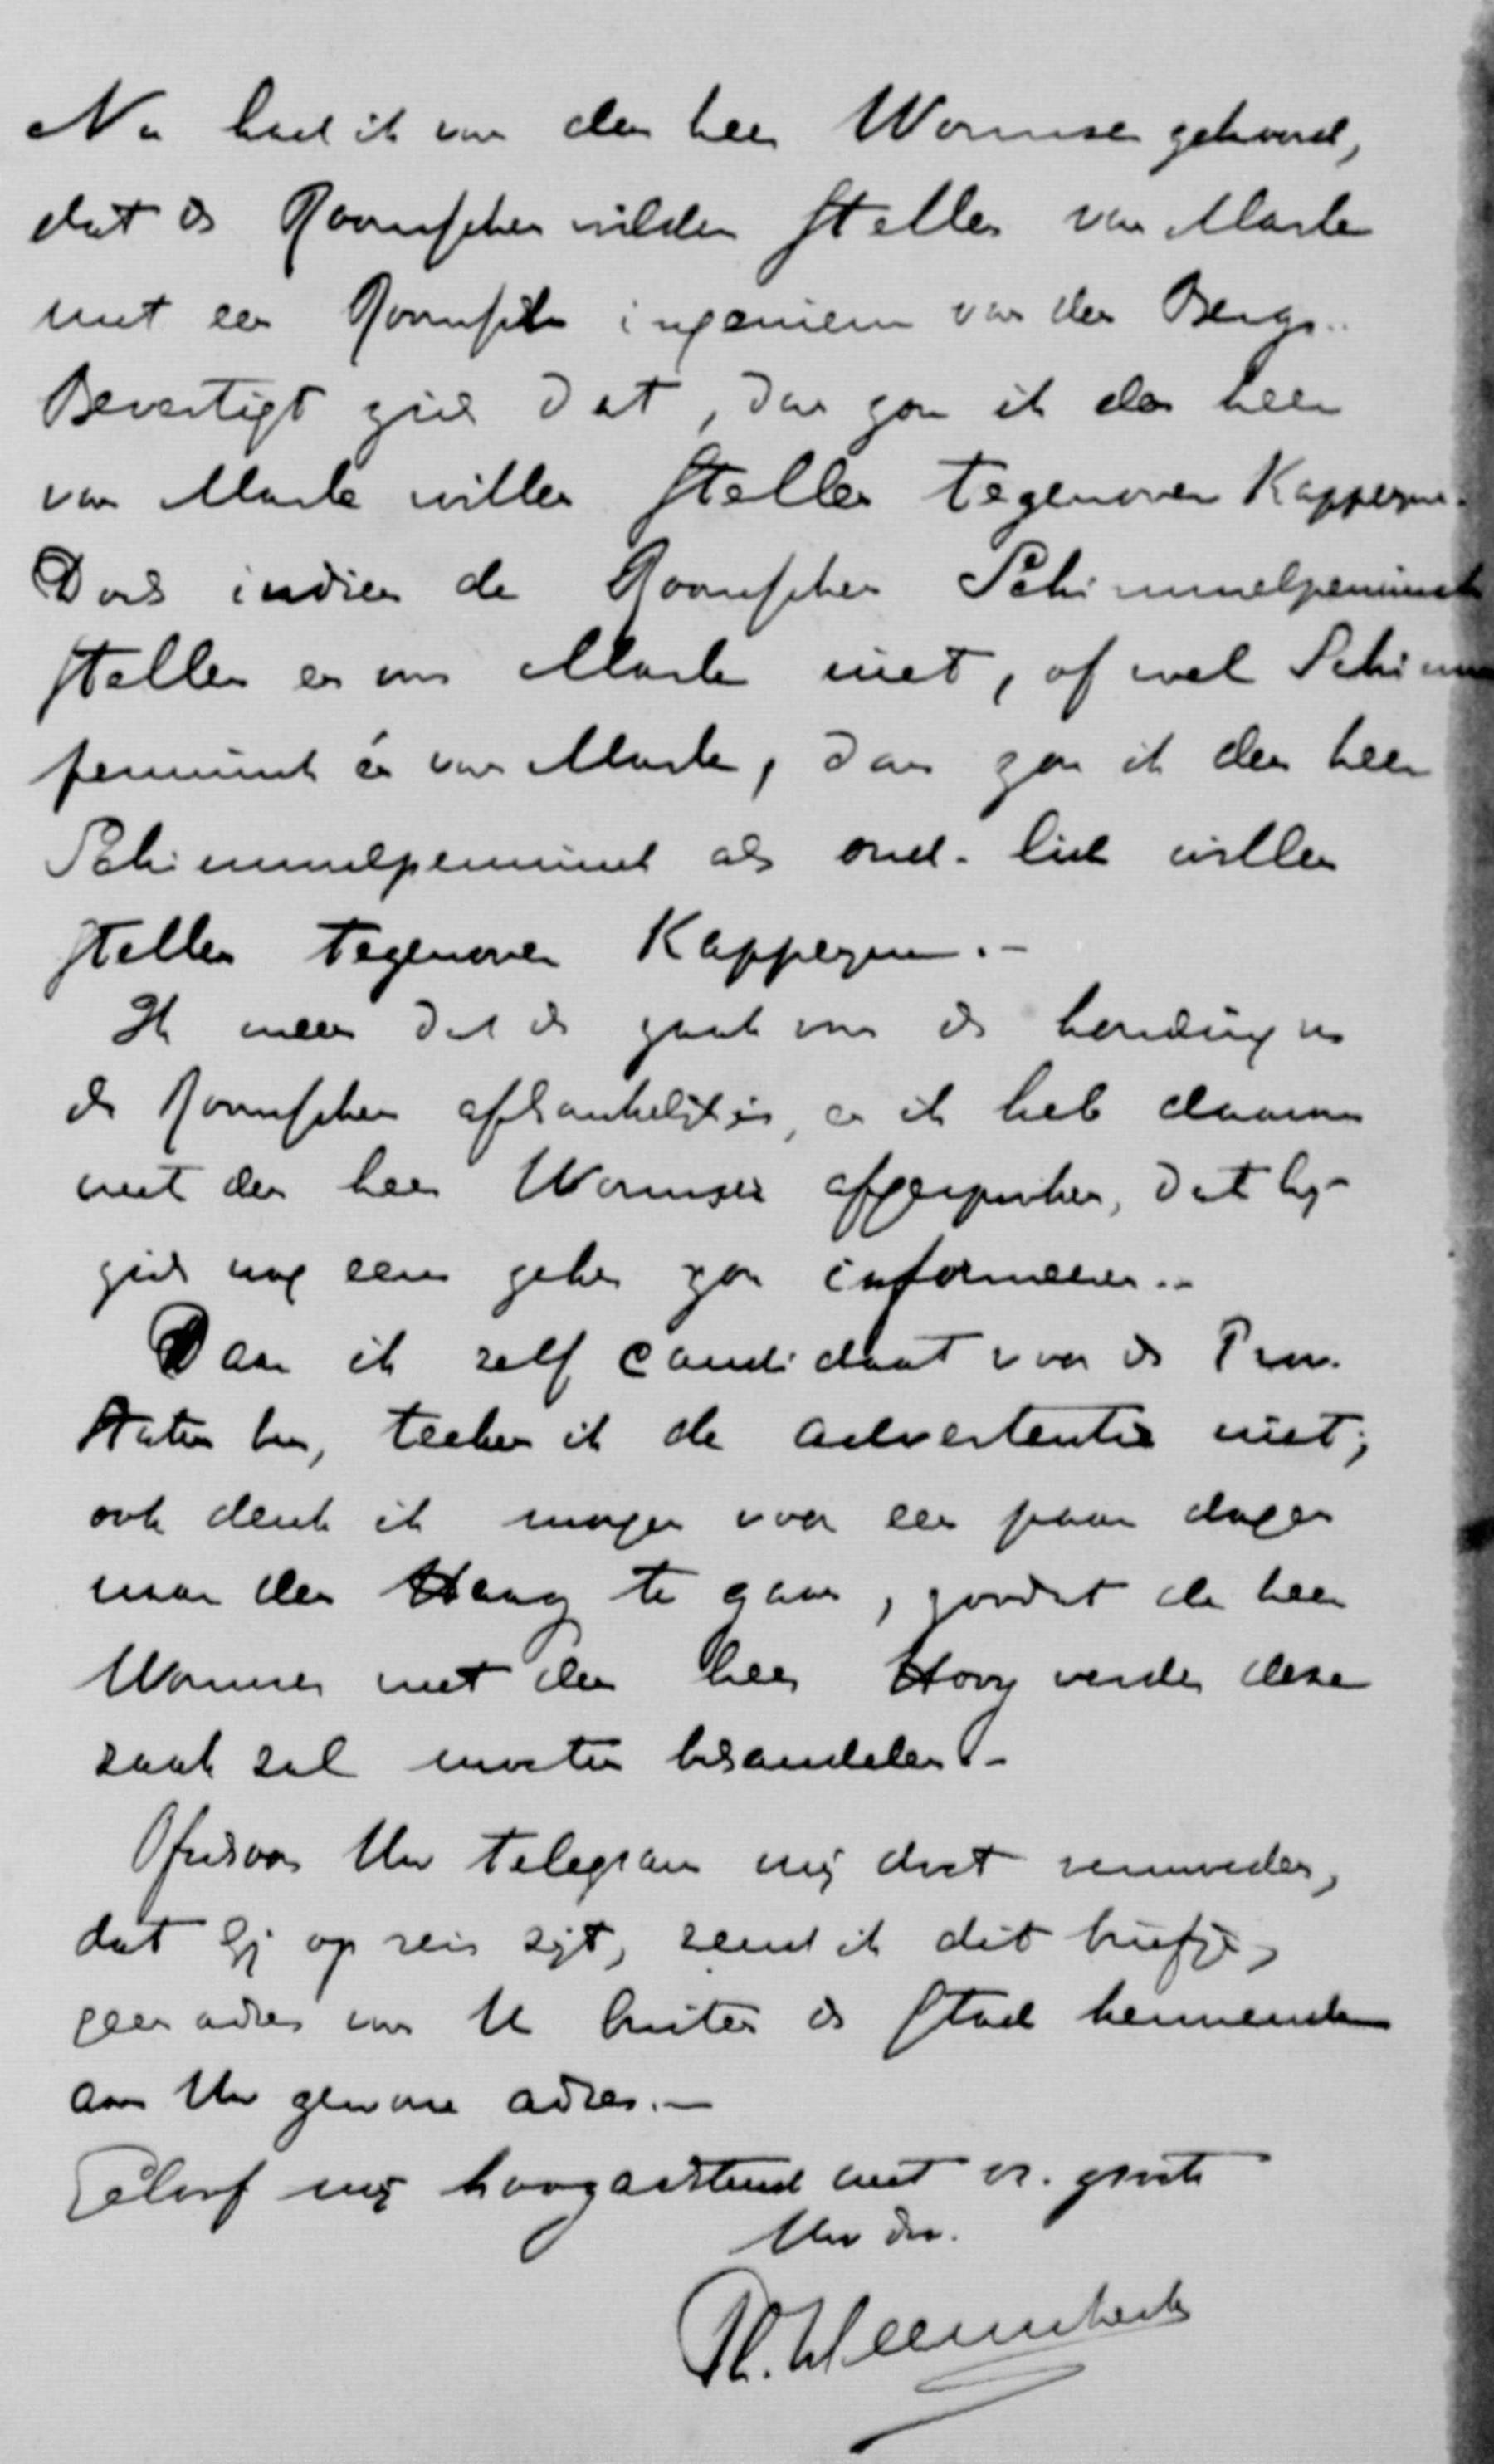 Nu had ik van den heer Wormser gehoord,
dat de Roomschen wilden stellen van Marle
met een Roomsch ingenieur van den Bergh.
Bevestigt zich dat, dan zou ik den heer
van Marle willen stellen tegenover Kappeyne.
Doch indien de Roomschen Schimmelpenninck
stellen en van Marle niet, of wel Schimmel
penninck én van Marle, dan zou ik den heer
Schimmelpenninck als oud-lid willen
stellen tegenover Kappeyne.-
Ik meen dat de zaak van de houding
de Roomschen afhankelijk is, en ik heb daarom
met den heer Wormser afgesproken, dat hij
zich nog eens zou informeeren.-
Daar ik zelf candidaat voor de Prov.
Staten ben, teeken ik de advertentie niet;
ook denk ik morgen voor een paar dagen
naar den Haag te gaan, zoodat de heer
Wormser met den heer Hovy verder deze
zaak zal moeten behandelen.-
Ofschoon Uw telegram mij doet vermoeden,
dat gij op reis zijt, zend ik dit briefje,
geen adres van U buiten de stad kennende
aan Uw gewone adres.-
Geloof mij hoogachtend met vr. groete
Uw dr.
Th. Heemskerk